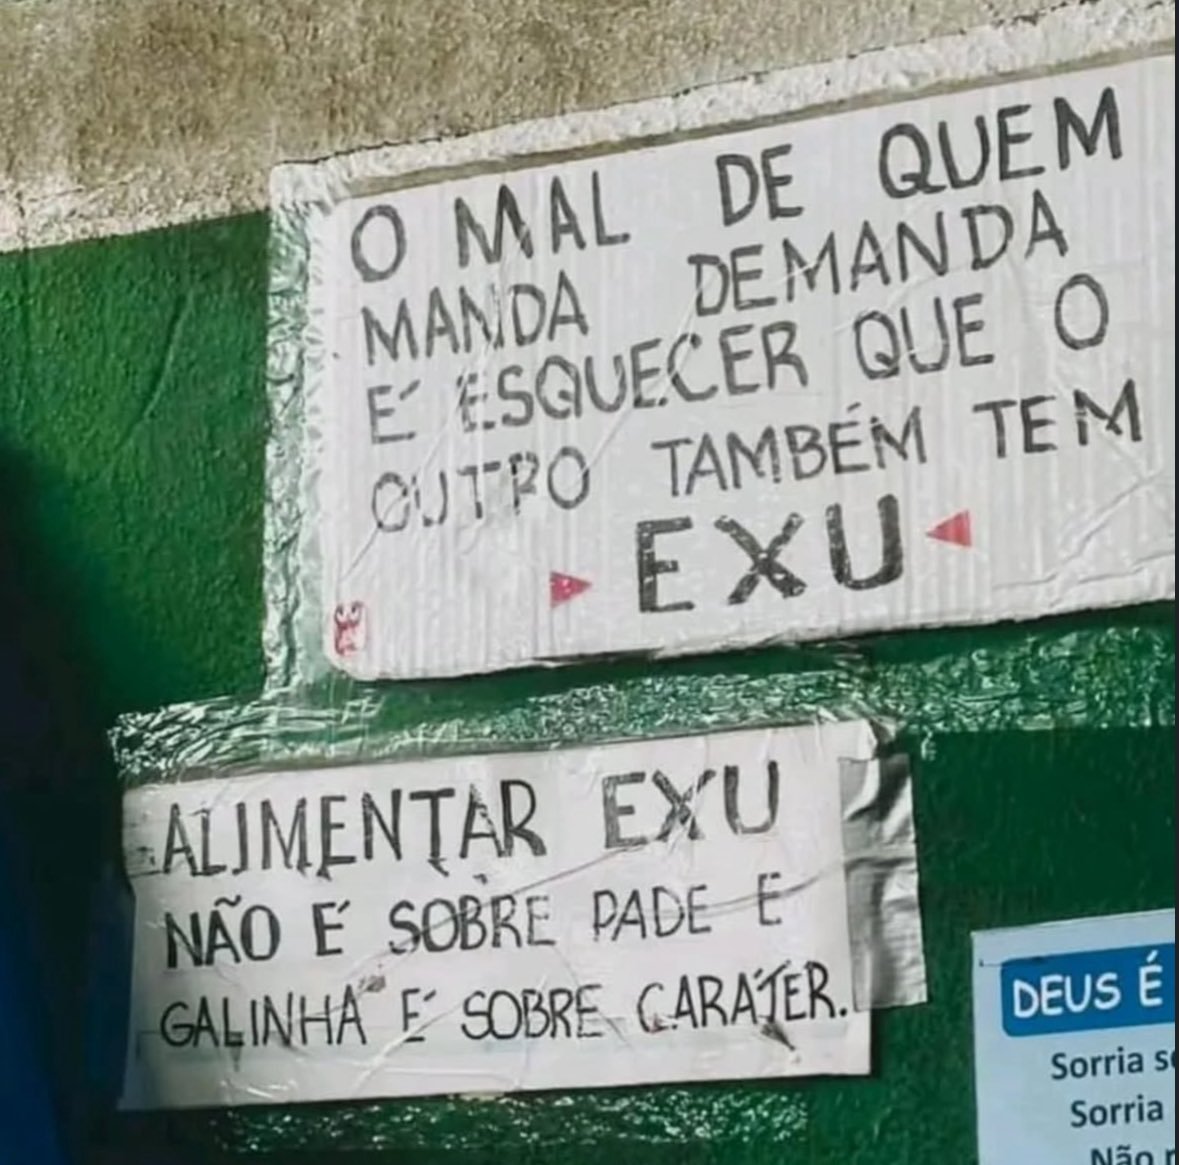 O MAL DE QUEM
MANDA DEMANDA
É ESQUECER QUE O
OUTRO TAMBÉM TEM
EXU
ALIMENTAR EXU
NÃO É SOBRE PADE E
GALINHA É SOBRE CARÁTER.
DEUS É
Sorria
Sorria
Não